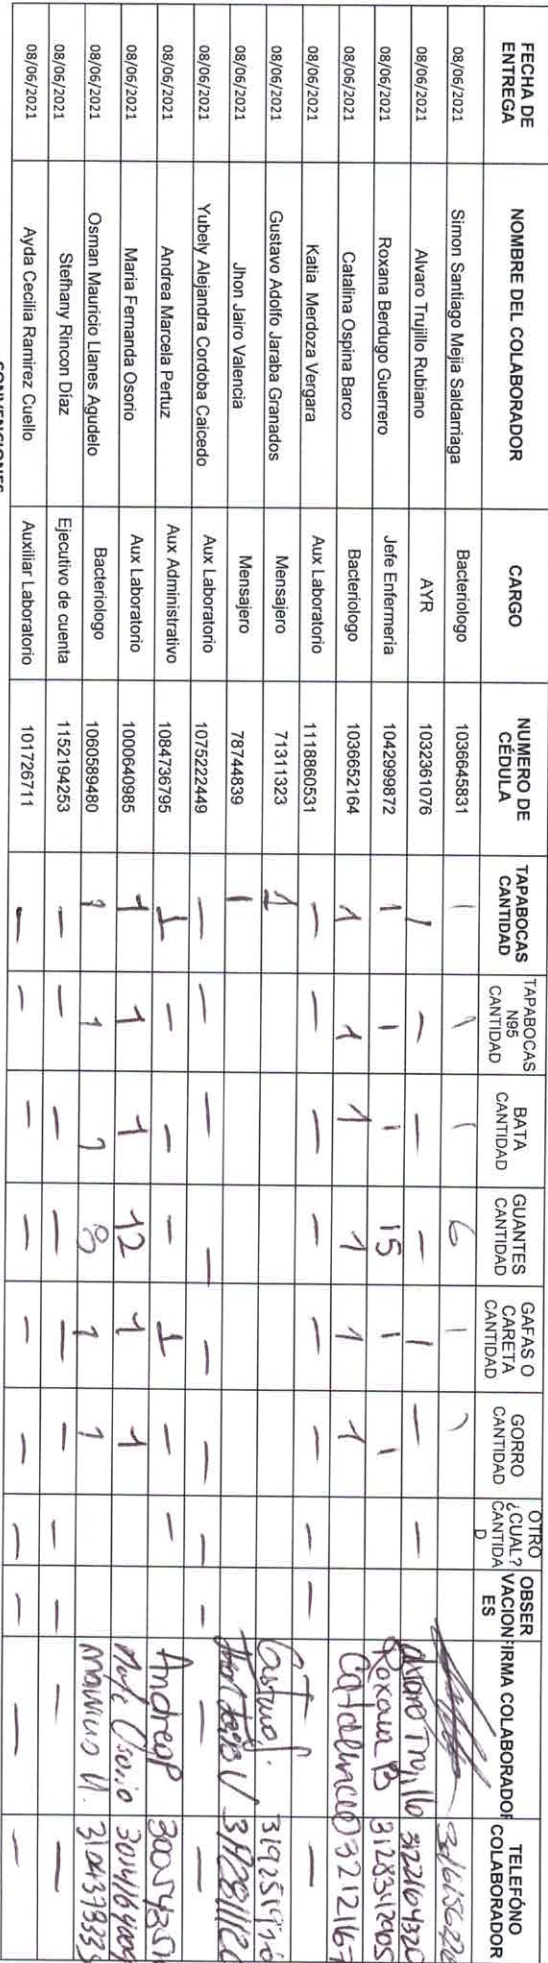 FECHA DE ENTREGA NOMBRE DEL COLABORADOR CARGO NUMERO DE CÉDULA TAPABOCAS CANTIDAD TAPABOCAS N95 CANTIDAD BATA CANTIDAD GUANTES CANTIDAD GAFAS O CARETA CANTIDAD GORRO CANTIDAD OTRO ¿CUAL? CANTIDAD OBSERVACIONES FIRMA COLABORADOR TELEFÓNO COLABORADOR
08/06/2021 Simon Santiago Mejia Saldarriaga Bacteriologo 1036645831 1 1 1 6 1 1
08/06/2021 Alvaro Trujillo Rubiano AYR 1032361076 1 — — — 1 — — Alvaro Trujillo
08/06/2021 Roxana Berdugo Guerrero Jefe Enfermeria 1042999872 1 1 1 15 1 1 Roxana B
08/06/2021 Catalina Ospina Barco Bacteriologo 1036652164 1 1 1 1 1 1
08/06/2021 Katia Merdoza Vergara Aux Laboratorio 1118860531 — — — — — — — — —
08/06/2021 Gustavo Adolfo Jaraba Granados Mensajero 71311323 1
08/06/2021 Jhon Jairo Valencia Mensajero 78744839 1
08/06/2021 Yubely Alejandra Cordoba Caicedo Aux Laboratorio 1075222449 — — — — — — — — — —
08/06/2021 Andrea Marcela Pertuz Aux Administrativo 1084736795 1 — — — 1 — — AndreaP
08/06/2021 Maria Fernanda Osorio Aux Laboratorio 1000640985 1 1 1 12 1 1 Osorio
08/06/2021 Osman Mauricio Llanes Agudelo Bacteriologo 1060589480 1 1 1 8 1 1
08/06/2021 Stefhany Rincon Díaz Ejecutivo de cuenta 1152194253 — — — — — — — — — —
08/06/2021 Ayda Cecilia Ramirez Cuello Auxiliar Laboratorio 101726711 — — — — — — — — — —
CONVENCIONES